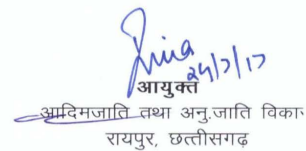 24/7/17
आयुक्त
आदिमजाति तथा अनु.जाति विका
रायपुर, छत्तीसगढ़